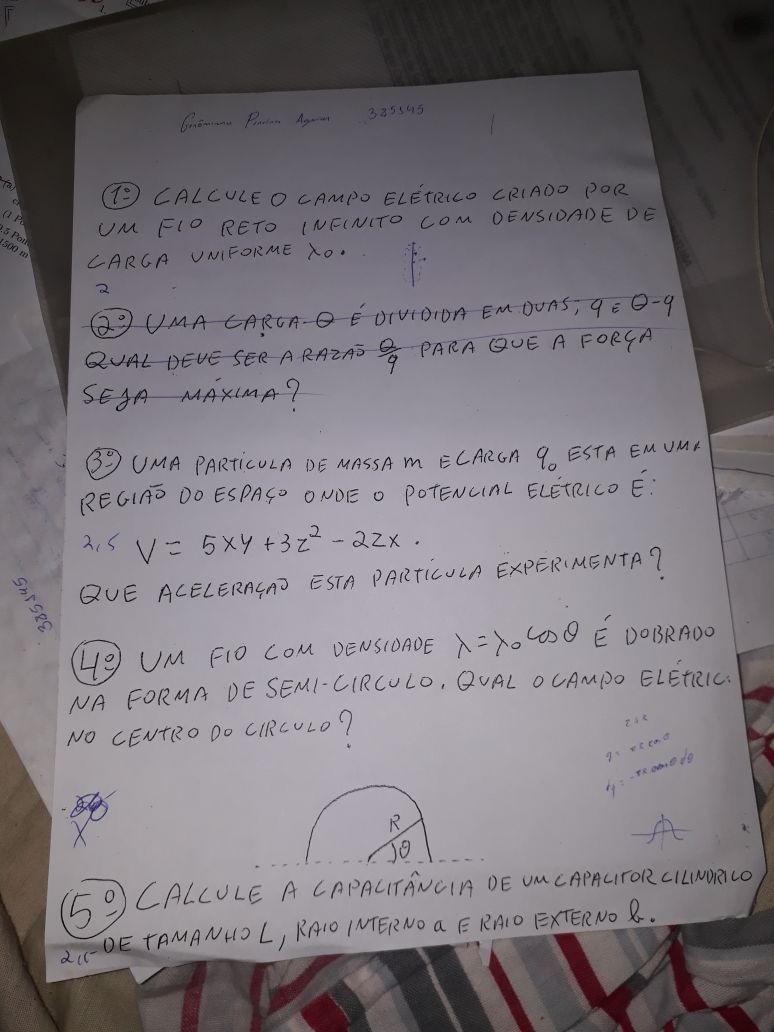 385545
1º CALCULE O CAMPO ELÉTRICO CRIADO POR
UM FIO RETO INFINITO COM DENSIDADE DE
CARGA UNIFORME λ₀.
2
2º UMA CARGA Q É DIVIDIDA EM DUAS; q E Q-q
QUAL DEVE SER A RAZÃO Q/q PARA QUE A FORÇA
SEJA MÁXIMA?
3º UMA PARTÍCULA DE MASSA m E CARGA q₀ ESTA EM UMA
REGIÃO DO ESPAÇO ONDE O POTENCIAL ELÉTRICO É:
2,5 V = 5xy + 3z² - 2zx.
QUE ACELERAÇÃO ESTA PARTÍCULA EXPERIMENTA?
385545
4º UM FIO COM DENSIDADE λ=λ₀ cos θ É DOBRADO
NA FORMA DE SEMI-CIRCULO. QUAL O CAMPO ELÉTRIC
NO CENTRO DO CIRCULO?
R
θ
5º CALCULE A CAPACITÂNCIA DE UM CAPACITOR CILINDRICO
2,5 DE TAMANHO L, RAIO INTERNO a E RAIO EXTERNO b.